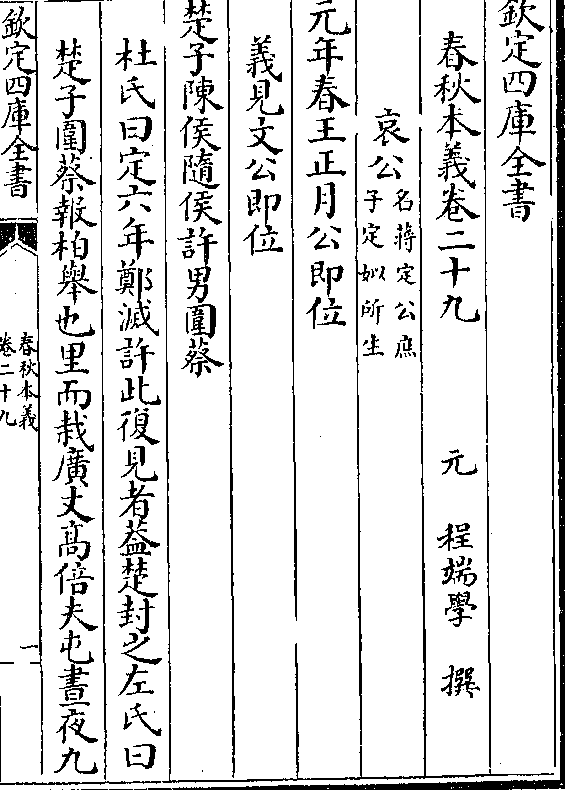 欽定四庫全書
春秋本義卷二十九
元 程端學 撰
哀公名蔣定公庶
子定姒所生
元年春王正月公即位
義見文公即位
楚子陳侯隨侯許男圍蔡
杜氏曰定六年鄭滅許此復見者蓋楚封之左氏曰
楚子圍蔡報柏舉也里而栽廣丈髙倍夫屯晝夜九
欽定四庫全書
春秋本義
卷二十九
一